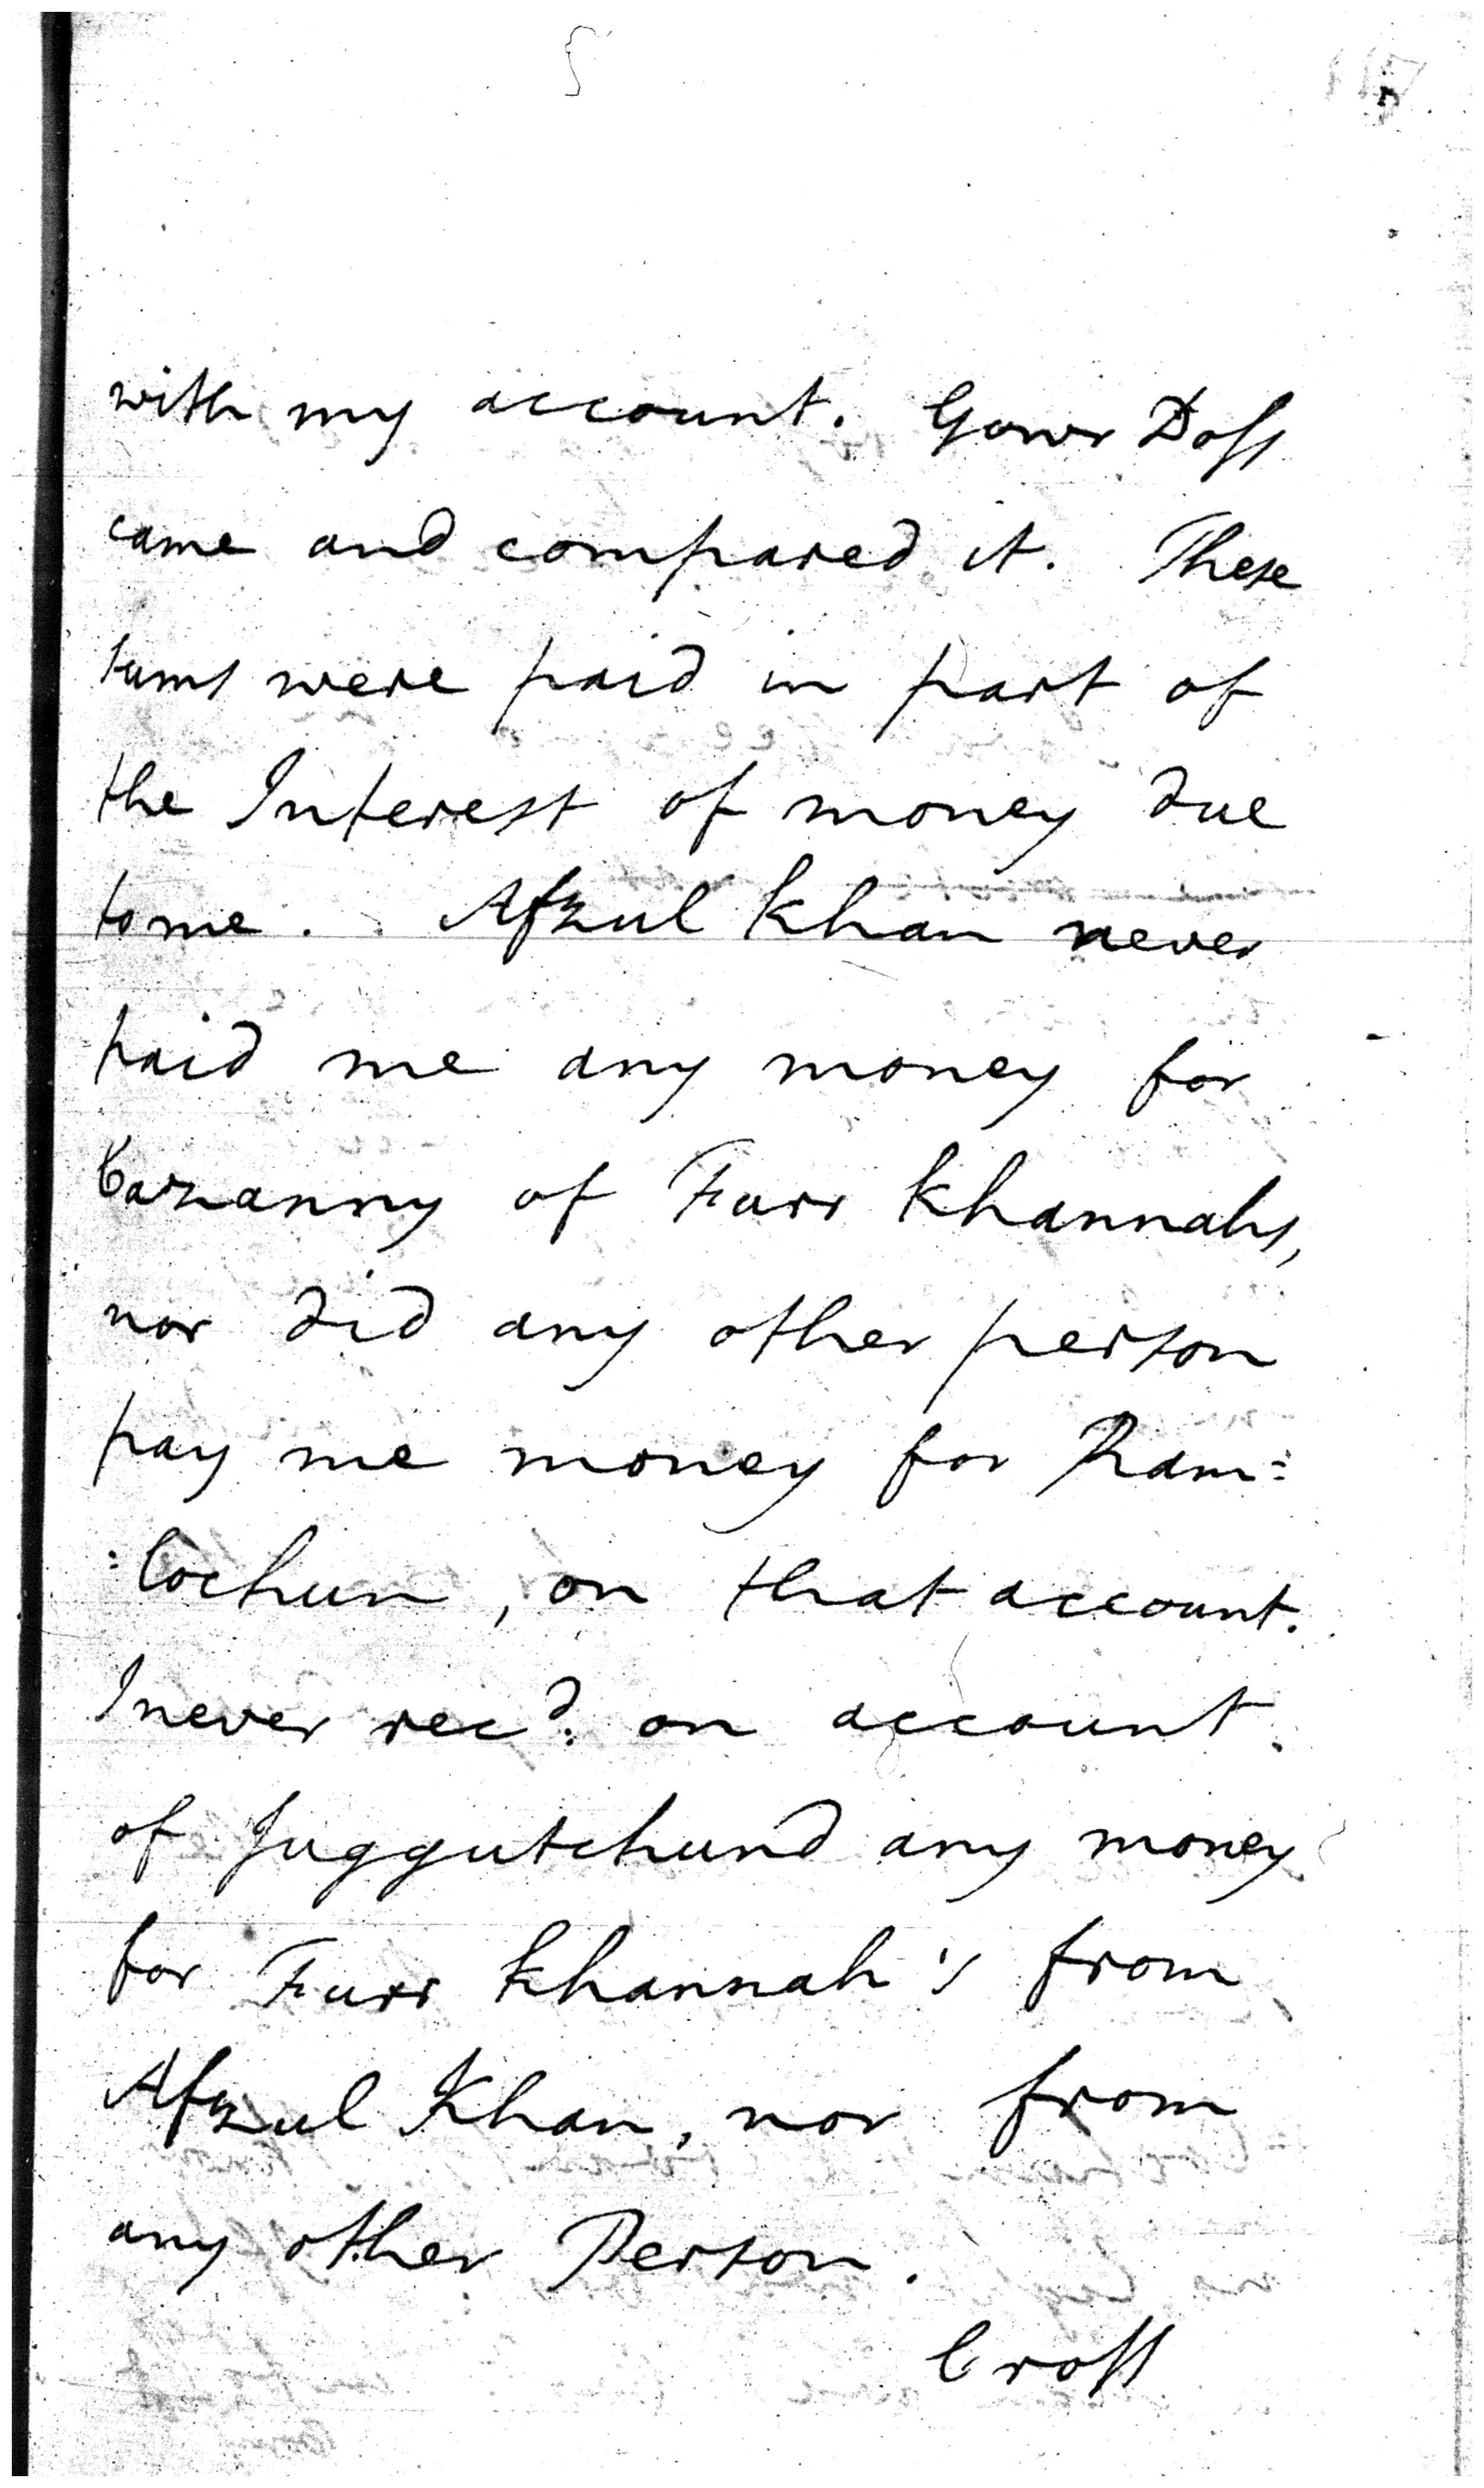 with my account. Gowr Doss
came and compared it. These
sums were paid in part of
the Interest of money due
to me. Afzul Khan never
paid me any money for
Cazanny of Furr Khannahs,
nor did any other person
pay me money for Ram=
=lochun, on that account.
I never recd. on account
of Juggutchund any money
for Furr Khannah's from
Afzul Khan, nor from
any other Person.
Cross